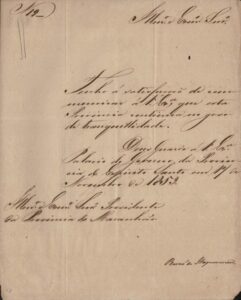 N 19
Illmo e Exmo Snr.
Tenho a satisfação de com-
municar a V. Exa que esta
Provincia continúa no goso
de tranquillidade.
Deos Guarde a V. Exa
Palacio do Governo da Provin-
cia do Espirito Santo em 19 de
Novembro de 1853.
Illmo e Exmo Snr Presidente
da Provincia do Maranhão
Barão de Itapemirim